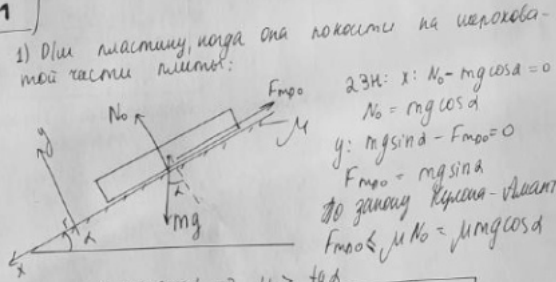 1
1) Для пластину, когда она покоится на шерохова-
той части плиты:
Fтро
N₀
μ
y
α
α
mg
x
2ЗН: x: N₀ - mgcosα = 0
N₀ = mgcosα
y: mgsinα - Fтро = 0
Fтро = mgsinα
По закону Кулона-Амонт
Fтро ≤ μN₀ = μmgcosα
μ ≥ tgα